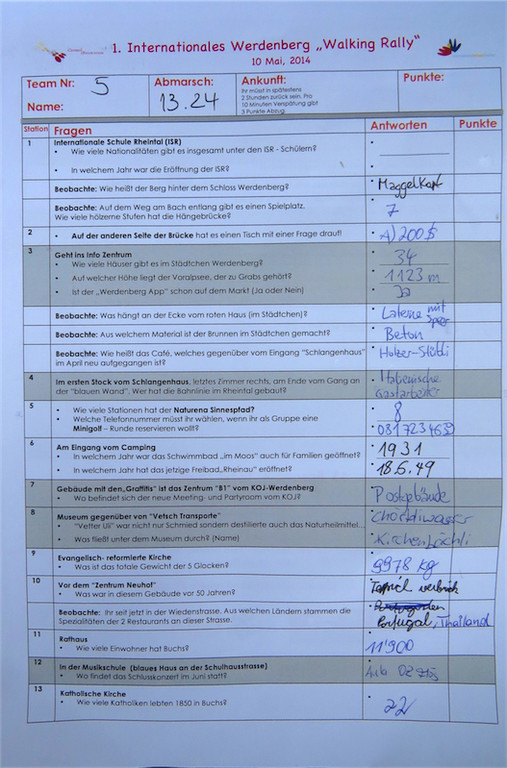 1. Internationales Werdenberg „Walking Rally"
10 Mai, 2014
Team Nr: 5
Name:
Abmarsch:
13.24
Ankunft:
Ihr müsst in spätestens
2 Stunden zurück sein. Pro
10 Minuten Verspätung gibt
3 Punkte Abzug.
Punkte:
Station Fragen Antworten Punkte
1 Internationale Schule Rheintal (ISR)
• Wie viele Nationalitäten gibt es insgesamt unter den ISR - Schülern?
• In welchem Jahr war die Eröffnung der ISR?
Beobachte: Wie heißt der Berg hinter dem Schloss Werdenberg? Maggelkopf
Beobachte: Auf dem Weg am Bach entlang gibt es einen Spielplatz.
Wie viele hölzerne Stufen hat die Hängebrücke? 7
2 • Auf der anderen Seite der Brücke hat es einen Tisch mit einer Frage drauf! A) 200 $
3 Geht ins Info Zentrum
• Wie viele Häuser gibt es im Städtchen Werdenberg? 34
• Auf welcher Höhe liegt der Voralpsee, der zu Grabs gehört? 1123 m
• Ist der „Werdenberg App" schon auf dem Markt (Ja oder Nein) Ja
Beobachte: Was hängt an der Ecke vom roten Haus (im Städtchen)? Laterne mit
Beobachte: Aus welchem Material ist der Brunnen im Städtchen gemacht? Beton
Beobachte: Wie heißt das Café, welches gegenüber vom Eingang "Schlangenhaus"
im April neu aufgegangen ist?
4 Im ersten Stock vom Schlangenhaus, letztes Zimmer rechts, am Ende vom Gang an
der "blauen Wand". Wer hat die Bahnlinie im Rheintal gebaut?
Italienische
Gastarbeiter
5 • Wie viele Stationen hat der Naturena Sinnespfad? 8
• Welche Telefonnummer müsst ihr wählen, wenn ihr als Gruppe eine
Minigolf – Runde reservieren wollt?
6 Am Eingang vom Camping
• In welchem Jahr war das Schwimmbad „im Moos" auch für Familien geöffnet? 1931
• In welchem Jahr hat das jetzige Freibad „Rheinau" eröffnet? 18.6.49
7 Gebäude mit den „Graffitis" ist das Zentrum "81" vom KOJ-Werdenberg
• Wo befindet sich der neue Meeting- und Partyroom vom KOJ? Postgebäude
8 Museum gegenüber von "Vetsch Transporte"
• "Vetter Uli" war nicht nur Schmied sondern destillierte auch das Naturheilmittel...
• Was fließt unter dem Museum durch? (Name) Kirchenbächli
9 Evangelisch- reformierte Kirche
• Was ist das totale Gewicht der 5 Glocken? 9978 kg
10 Vor dem "Zentrum Neuhof"
• Was war in diesem Gebäude vor 50 Jahren?
Beobachte: Ihr seit jetzt in der Wiedenstrasse. Aus welchen Ländern stammen die
Spezialitäten der 2 Restaurants an dieser Strasse.
Portugal, Thailand
11 Rathaus
• Wie viele Einwohner hat Buchs? 11'900
12 In der Musikschule (blaues Haus an der Schulhausstrasse)
• Wo findet das Schlusskonzert im Juni statt?
13 Katholische Kirche
• Wie viele Katholiken lebten 1850 in Buchs? 22